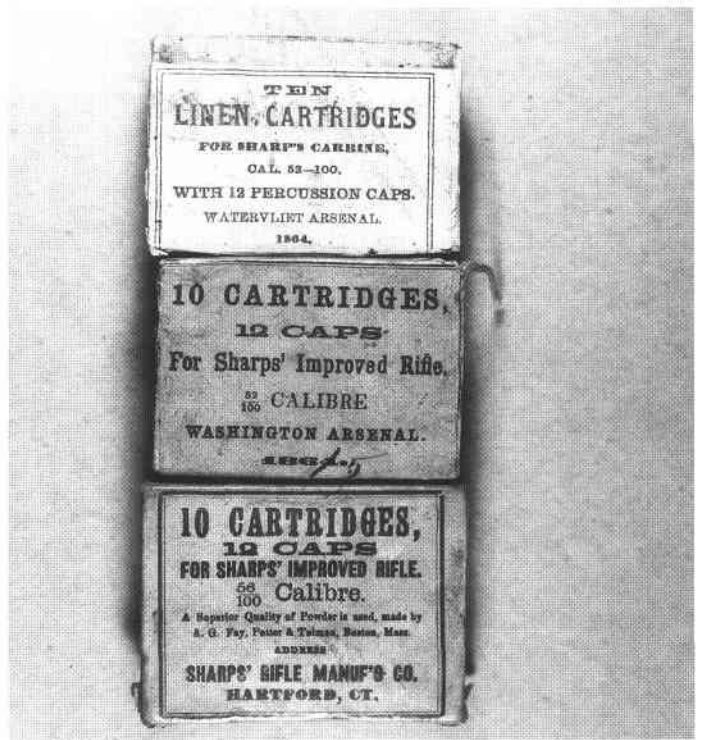 TEN
LINEN CARTRIDGES
FOR SHARP'S CARBINE,
CAL. 52–100,
WITH 12 PERCUSSION CAPS.
WATERVLIET ARSENAL.
1864.
10 CARTRIDGES,
12 CAPS
For Sharps' Improved Rifle.
52/100 CALIBRE
WASHINGTON ARSENAL.
1864. 5
10 CARTRIDGES,
12 CAPS
FOR SHARPS' IMPROVED RIFLE.
56/100 Calibre.
A Superior Quality of Powder is used, made by
A. G. Fay, Potter & Tolman, Boston, Mass.
ADDRESS
SHARPS' RIFLE MANUF'G CO.
HARTFORD, CT.